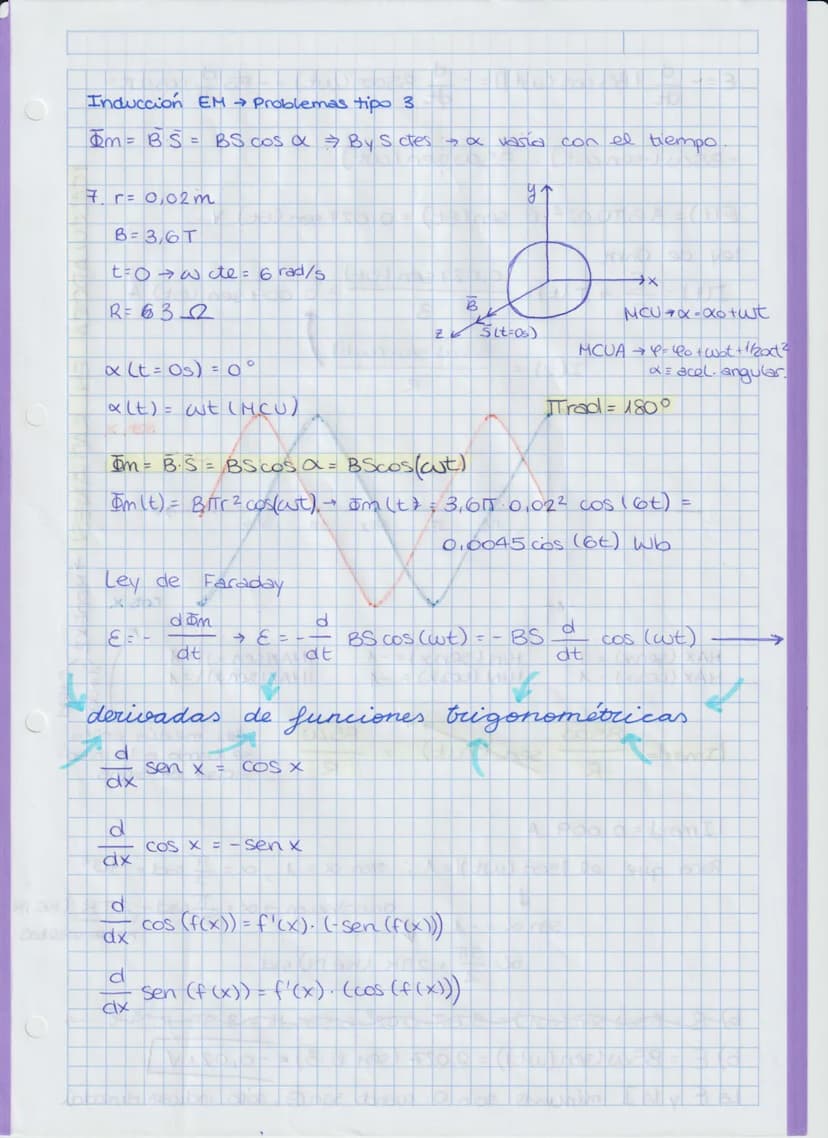 Inducción EM → Problemas tipo 3
Φm = B̄ S̄ = BS cos α ⇒ B y S ctes → α varía con el tiempo.
7. r = 0,02 m
B = 3,6 T
t=0 → ω cte = 6 rad/s
R = 63 Ω
y
x
B̄
z
S̄(t=0s)
MCU → α = α0 + ωt
MCUA → φ = φ0 + ω0t + 1/2αt²
α = acel. angular.
α (t = 0s) = 0°
α(t) = ωt (MCU)
πrad = 180°
Φm = B̄·S̄ = BS cos α = BS cos(ωt)
Φm(t) = Bπr² cos(ωt) → Φm(t) = 3,6π·0,02² cos (6t) =
0,0045 cos (6t) Wb
Ley de Faraday
ε = - dΦm/dt → ε = - d/dt BS cos (ωt) = - BS d/dt cos (ωt) →
derivadas de funciones trigonométricas
d/dx sen x = cos x
d/dx cos x = - sen x
d/dx cos (f(x)) = f'(x). (-sen (f(x)))
d/dx sen (f(x)) = f'(x). (cos (f(x)))